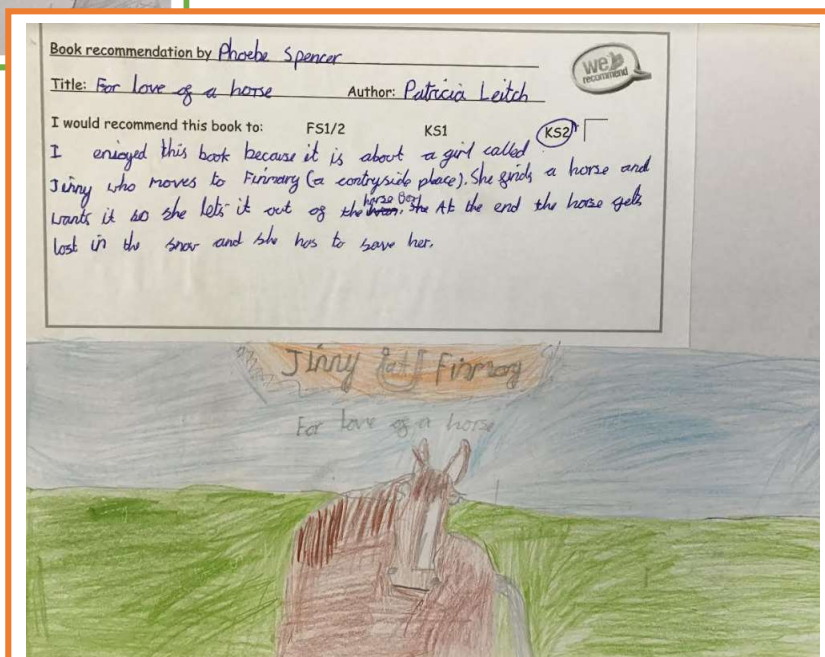 Book recommendation by Phoebe Spencer
we recommend
Title: For love of a horse Author: Patricia Leitch
I would recommend this book to: FS1/2 KS1 KS2
I enjoyed this book because it is about a girl called
Jinny who moves to Finmary (a contryside place). She finds a horse and
wants it so she lets it out of the horse box. She At the end the horse gets
lost in the snow and she has to save her.
Jinny at Finmory
For love of a horse